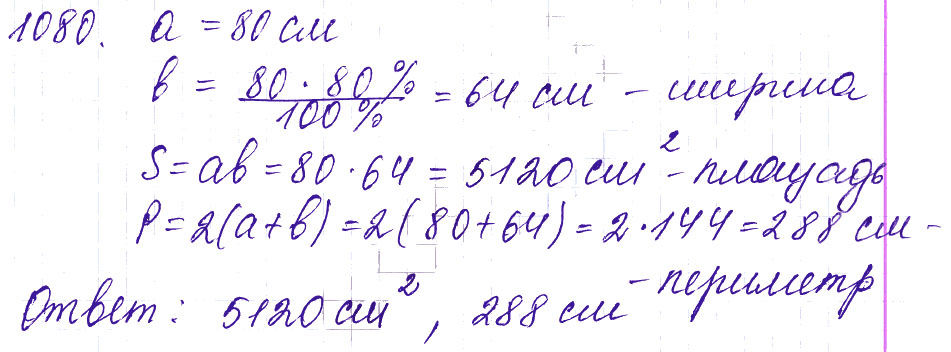 1080. a = 80 см
b = 80 · 80 % / 100 % = 64 см – ширина
S = ab = 80 · 64 = 5120 см² – площадь
P = 2(a+b) = 2(80+64) = 2 · 144 = 288 см –
– периметр
Ответ: 5120 см², 288 см